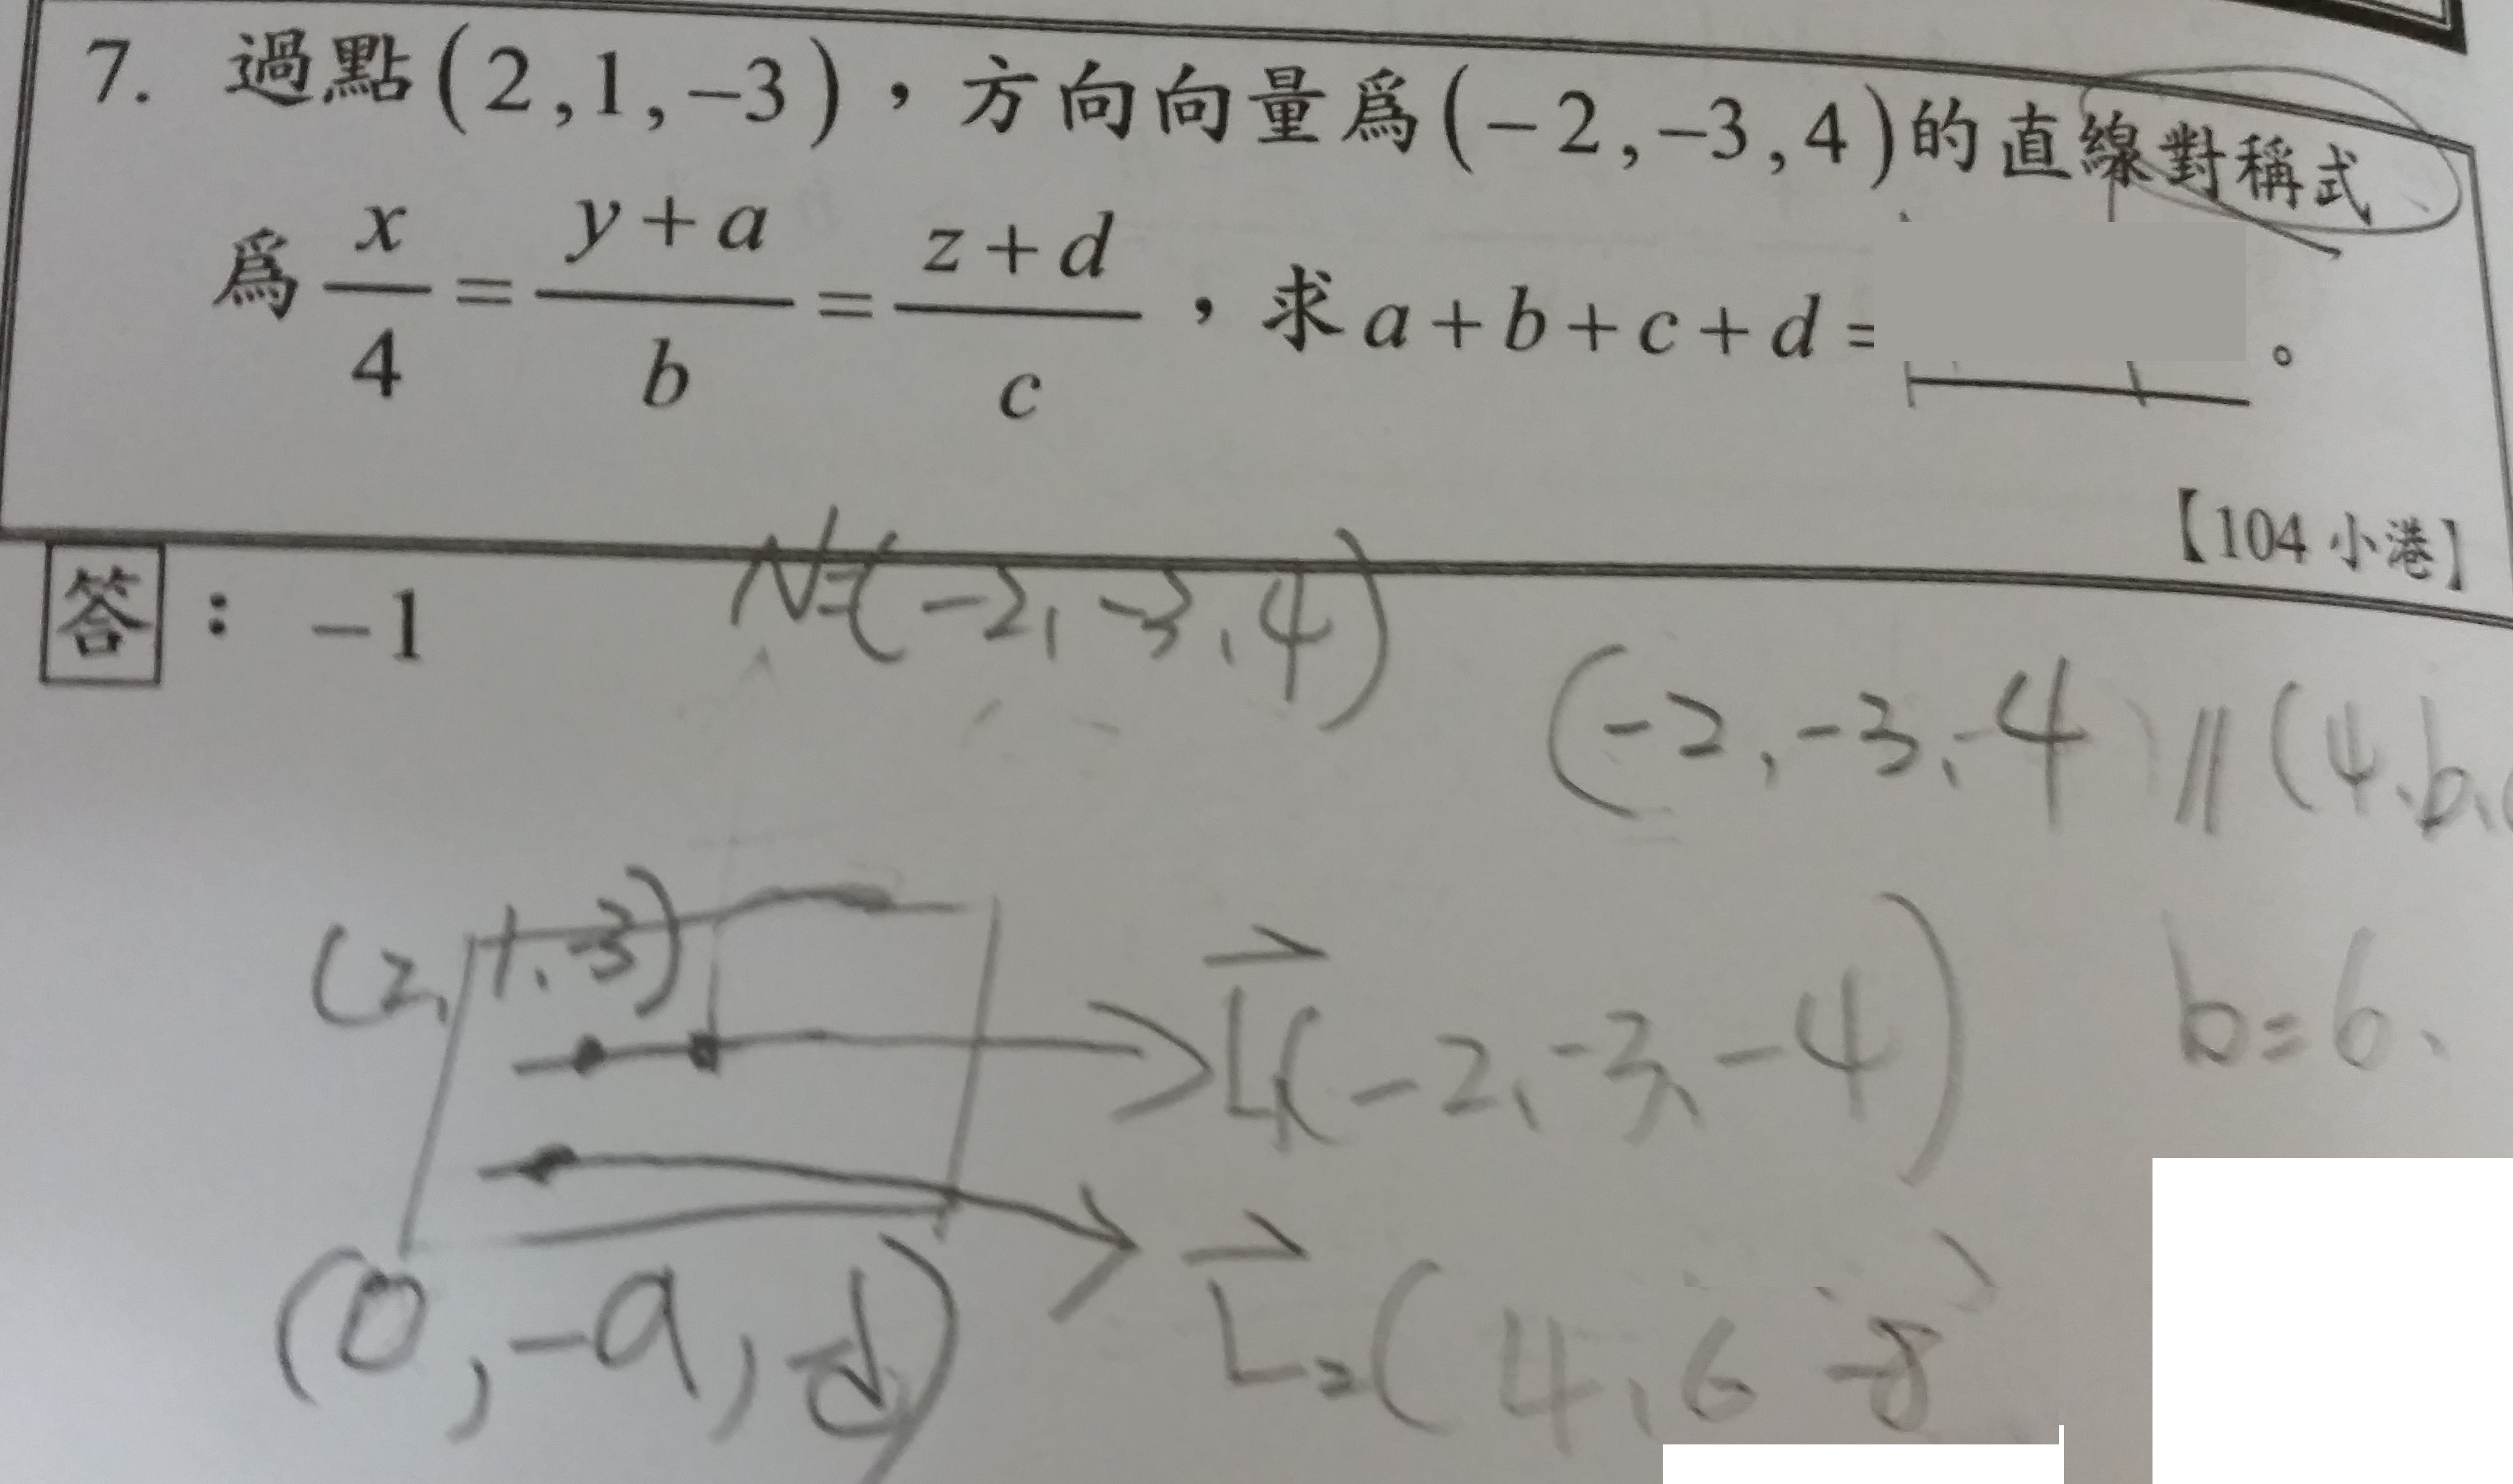 7. 過點(2,1,−3)，方向向量爲(−2,−3,4)的直線對稱式
爲 x/4 = (y+a)/b = (z+d)/c ，求a+b+c+d= 。
【104 小港】
答：−1
N=(-2,-3,4)
(-2,-3,-4) // (4,b,
(2,1,-3)
L₁(-2,-3,-4)
b=6
(0,-a,-d)
L₂(4,6 -8)